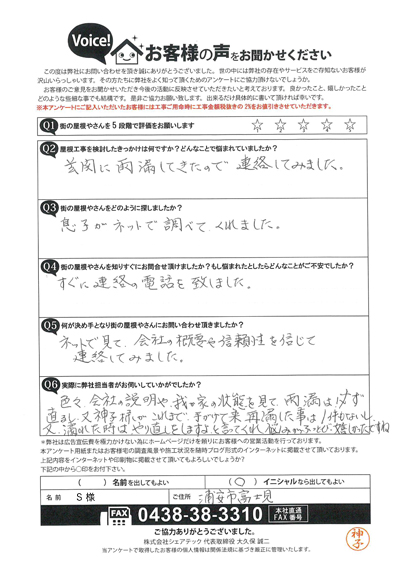 Voice!
お客様の声をお聞かせください
この度は弊社にお問い合わせを頂き誠にありがとうございました。世の中には弊社の存在やサービスをご存知ないお客様が
沢山いらっしゃいます。その方たちに弊社をよく知って頂くためのアンケートにご協力頂けないでしょうか。
お客様のご意見をお聞かせいただき今後の活動に反映させていただきたいと考えております。良かったこと、嬉しかったこと
どのような些細な事でも結構です。是非ご協力お願い致します。出来るだけ具体的に書いて頂ければ幸いです。
※本アンケートにご記入いただいたお客様には工事ご用命時に工事金額税抜きの2%をお値引きさせていただきます。
Q1 街の屋根やさんを5段階で評価をお願いします ☆ ☆ ☆ ☆ ☆
Q2 屋根工事を検討したきっかけは何ですか?どんなことで悩まれていましたか?
玄関に雨漏してきたので連絡してみました。
Q3 街の屋根やさんをどのように探しましたか?
息子がネットで調べてくれました。
Q4 街の屋根やさんを知りすぐにお問合せ頂けましたか?もし悩まれたとしたらどんなことがご不安でしたか?
すぐに連絡の電話を致しました。
Q5 何が決め手となり街の屋根やさんにお問い合わせ頂けましたか?
ネットで見て、会社の概要や信頼性を信じて
連絡してみました。
Q6 実際に弊社担当者がお伺いしていかがでしたか?
色々会社の説明や、我が家の状態を見て、雨漏は必ず
直るし、又神子様が これまで 手がけて来 再漏した事は1件もないし
又、漏れた時は やり直しをしますよと言ってくれ
※弊社は広告宣伝費を極力かけない為にホームページだけを頼りにお客様への営業活動を行っております。
本アンケート用紙またはお客様宅の調査風景や施工状況を随時ブログ形式のインターネットに掲載させて頂いております。
上記内容をインターネットや印刷物に掲載させて頂いてもよろしいでしょうか?
下記の中から○印をお付け下さい。
( ) 名前を出してもよい (○) イニシャルなら出してもよい
名前 S 様 ご住所 浦安市富士見
FAX 0438-38-3310 本社直通 FAX番号
ご協力ありがとうございました。
株式会社シェアテック 代表取締役 大久保 誠二
当アンケートで取得したお客様の個人情報は関係法規に基づき厳正に管理いたします。
神子